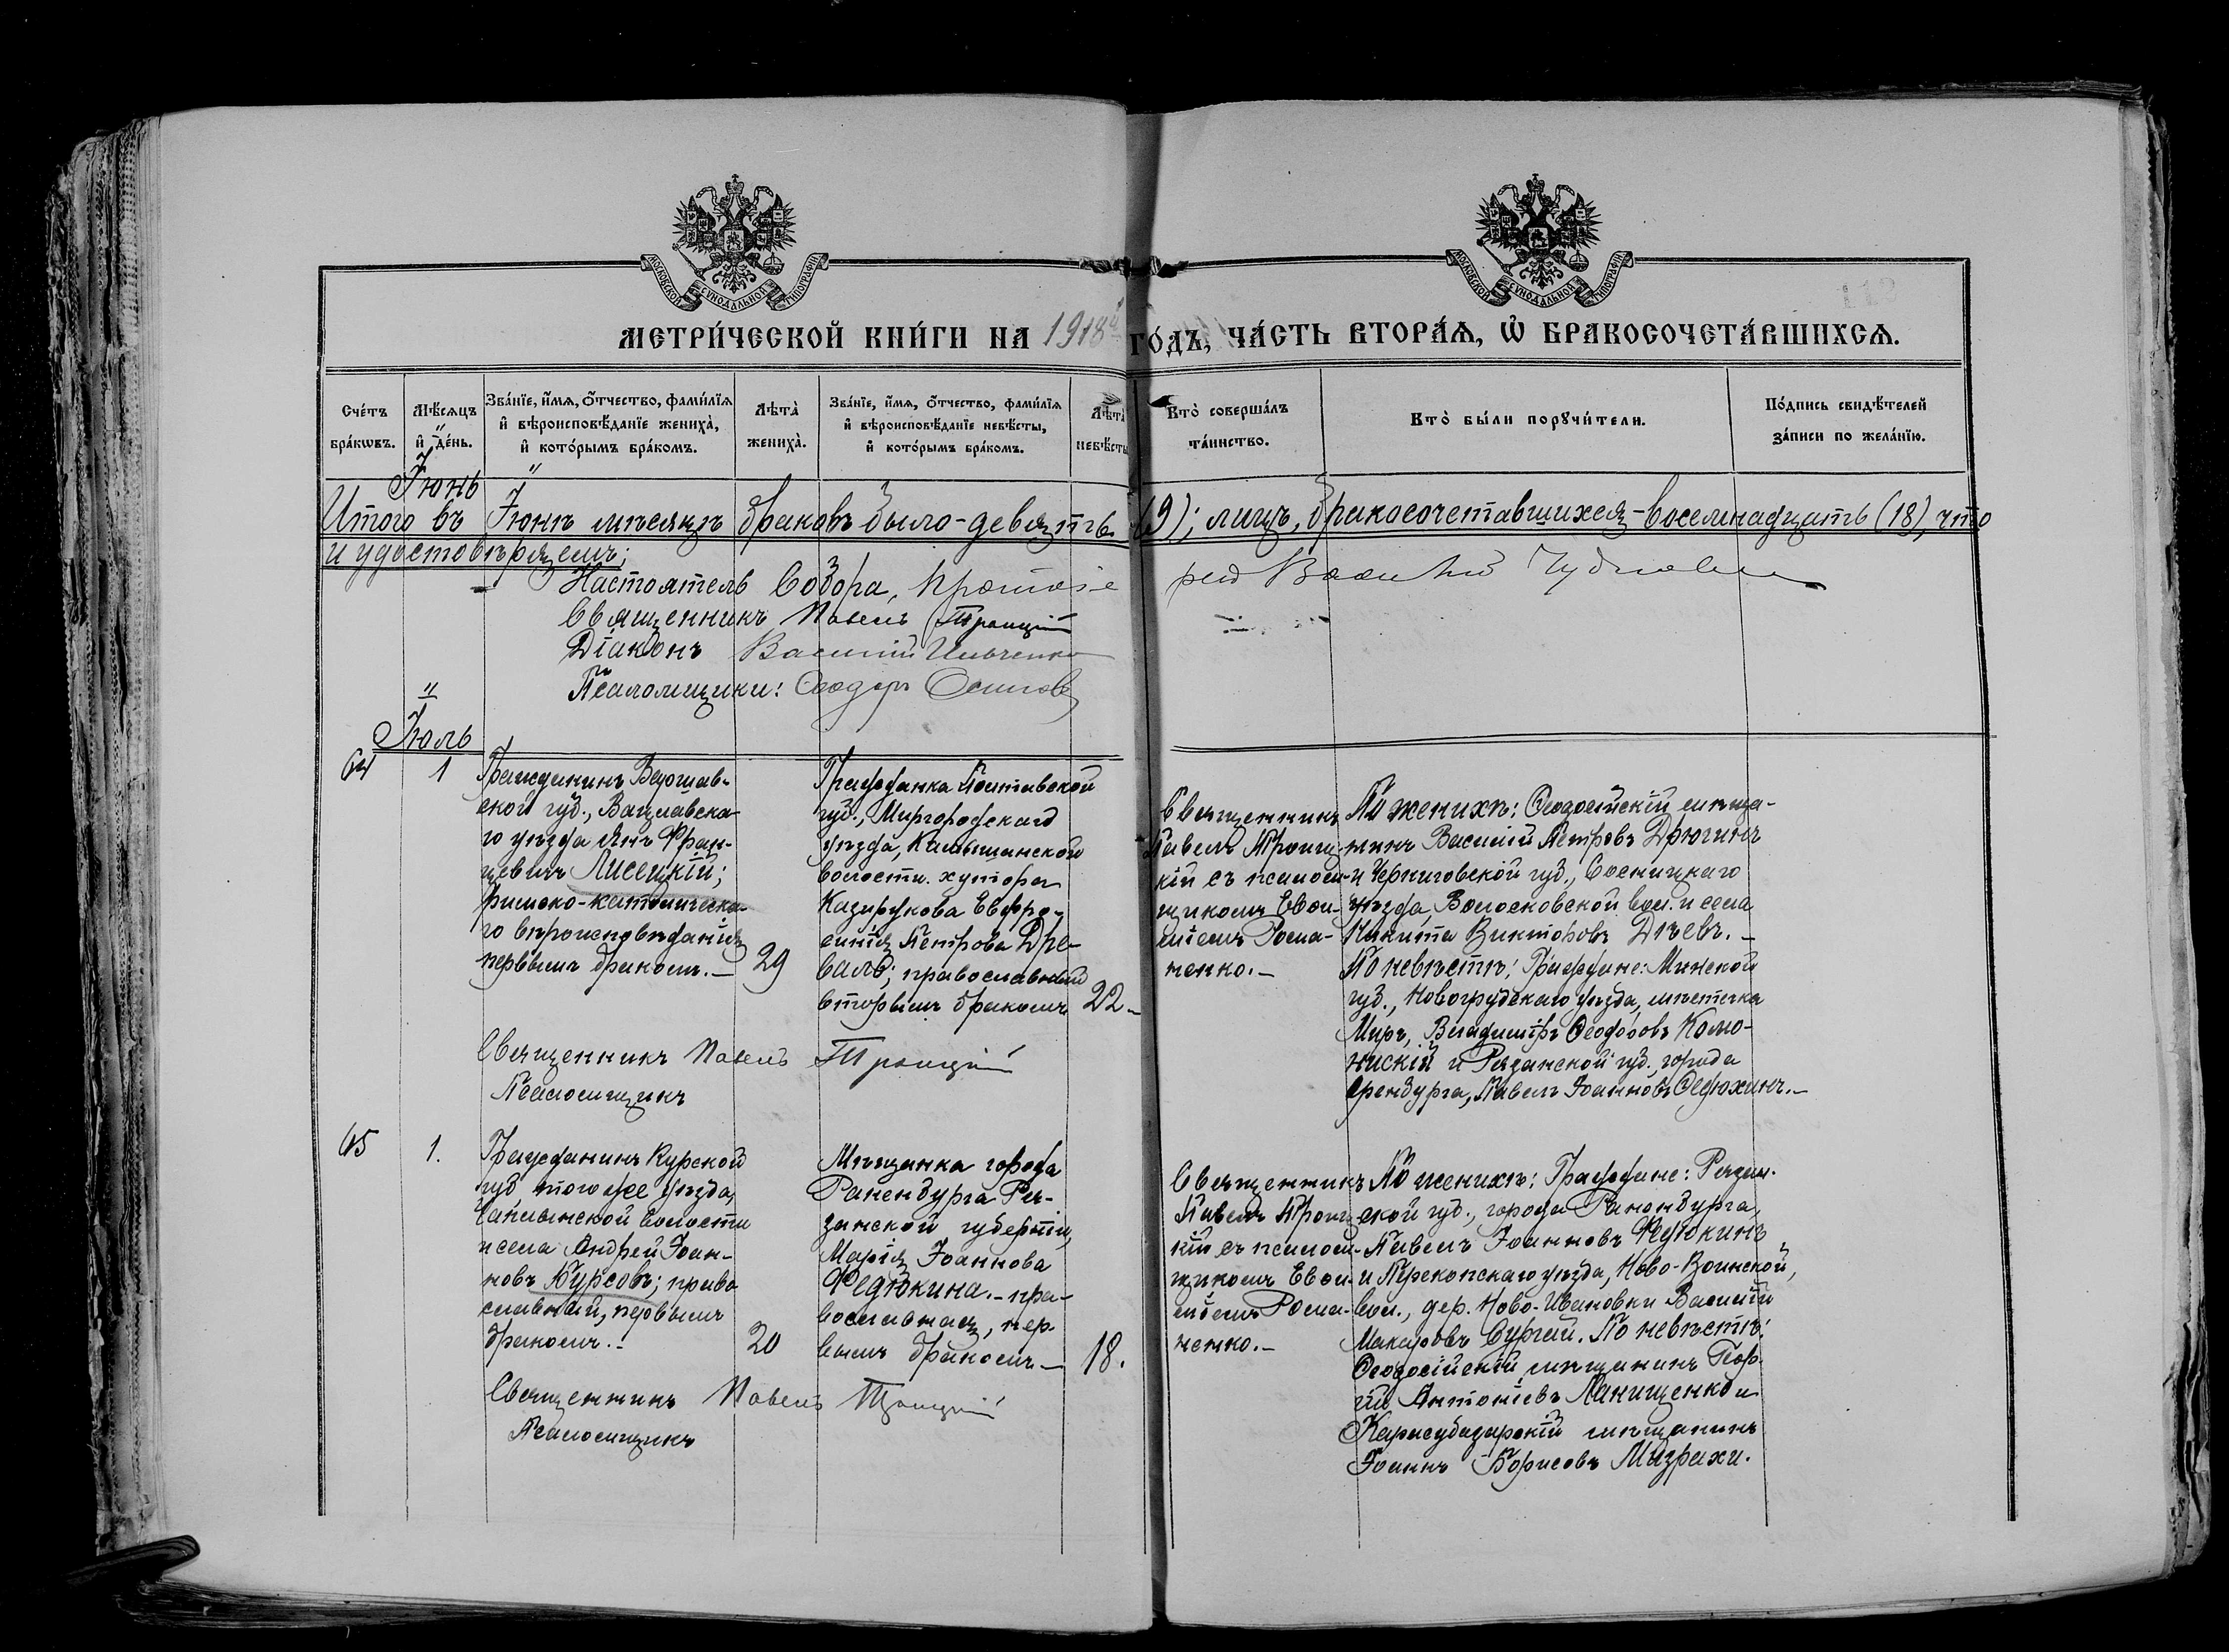 МОСКОВСКОЙ СѴНОДАЛЬНОЙ ТИПОГРАФІИ
МОСКОВСКОЙ СѴНОДАЛЬНОЙ ТИПОГРАФІИ
МЕТРИ́ЧЕСКОЙ КНИ́ГИ НА 1918 й ГО́ДЪ, ЧА́СТЬ ВТОРА́Ѧ, Ѽ БРАКОСОЧЕТА́ВШИХСѦ.
Сче́тъ бра́кѡвъ.
Мѣ́сяцъ и҆ де́нь.
Зва́нїе, и҆́мѧ, ѻ҆́тчество, фами́лїѧ и҆ вѣроисповѣ́данїе жениха̀, и҆ кото́рымъ бра́комъ.
Лѣта̀ жениха̀.
Зва́нїе, и҆́мѧ, ѻ҆́тчество, фами́лїѧ и҆ вѣроисповѣ́данїе невѣ́сты, и҆ кото́рымъ бра́комъ.
Лѣта̀ невѣ́сты
Кто̀ соверша́лъ та́инство.
Кто̀ бы́ли порꙋчи́тели.
По́дпись свидѣ́телей за́писи по жела́нїю.
Іюнь
Итого въ Іюнѣ мѣсяцѣ браковъ было - девять (9); лицъ, бракосочетавшихся - восемнадцать (18), что
и удостовѣряемъ;
Настоятель Собора, Протоіерей Василій
Священникъ Павелъ Троицкій
Діаконъ Василій Ильченко
Псаломщики: Ѳеодоръ Осиповъ
Іюль
64
1
Гражданинъ Варшав-
ской губ., Вацлавска-
го уѣзда Янъ Фран-
цевичъ Лисецкій;
римско-католическа-
го вѣроисповѣданія
первымъ бракомъ. -
29
Гражданка Полтавской
губ., Миргородскаго
уѣзда, Камышанской
волости. хутора
Казидукова Евфро-
синія Петрова Дре-
валь; православный
вторымъ бракомъ
22 -
Священникъ
Павелъ Троиц-
кій съ псалом-
щикомъ Евѳи-
міемъ Рома-
ненко. -
По женихѣ: Ѳеодосійскій мѣща-
нинъ Василій Петровъ Дрюгинъ
и Черниговской губ., Сосницкаго
уѣзда, Волосковской вол. и села
Никита Викторовъ Дѣевъ. -
По невѣстѣ: Граждане: Минской
губ., Новогрудскаго уѣзда, мѣстечка
Миръ, Владиміръ Ѳеодоровъ Комо-
нискій и Рязанской губ., города
Оренбурга, Павелъ Іоанновъ Ѳедюхинъ. -
Священникъ Павелъ Троицкій
Псаломщикъ
65
1.
Гражданинъ Курской
губ, того же уѣзда,
волости
и села Андрей Іоан-
новъ Курсовъ; право
славный, первымъ
бракомъ. -
20
Мѣщанка города
Раненбурга Ря-
занской губерніи,
Марія Іоаннова
Федюкина. - пра-
вославная, пер-
вымъ бракомъ -
18.
Священникъ
Павелъ Троиц-
кій съ псалом-
щикомъ Евѳи-
міемъ Рома-
ненко. -
По женихѣ: Граждане: Рязан-
ской губ., города Раненбурга,
Павелъ Іоанновъ Федюкинъ
и Перекопскаго уѣзда, Ново-Воинской,
вол., дер. Ново-Ивановки Василій
Макаровъ Сургай. По невѣстѣ:
Ѳеодосійскій мѣщанинъ Геор-
гій Антоніевъ Ланищенко и
Карасубазарскій мѣщанинъ
Іоаннъ Борисовъ Мизрахи.
Священникъ Павелъ Троицкій
Псаломщикъ